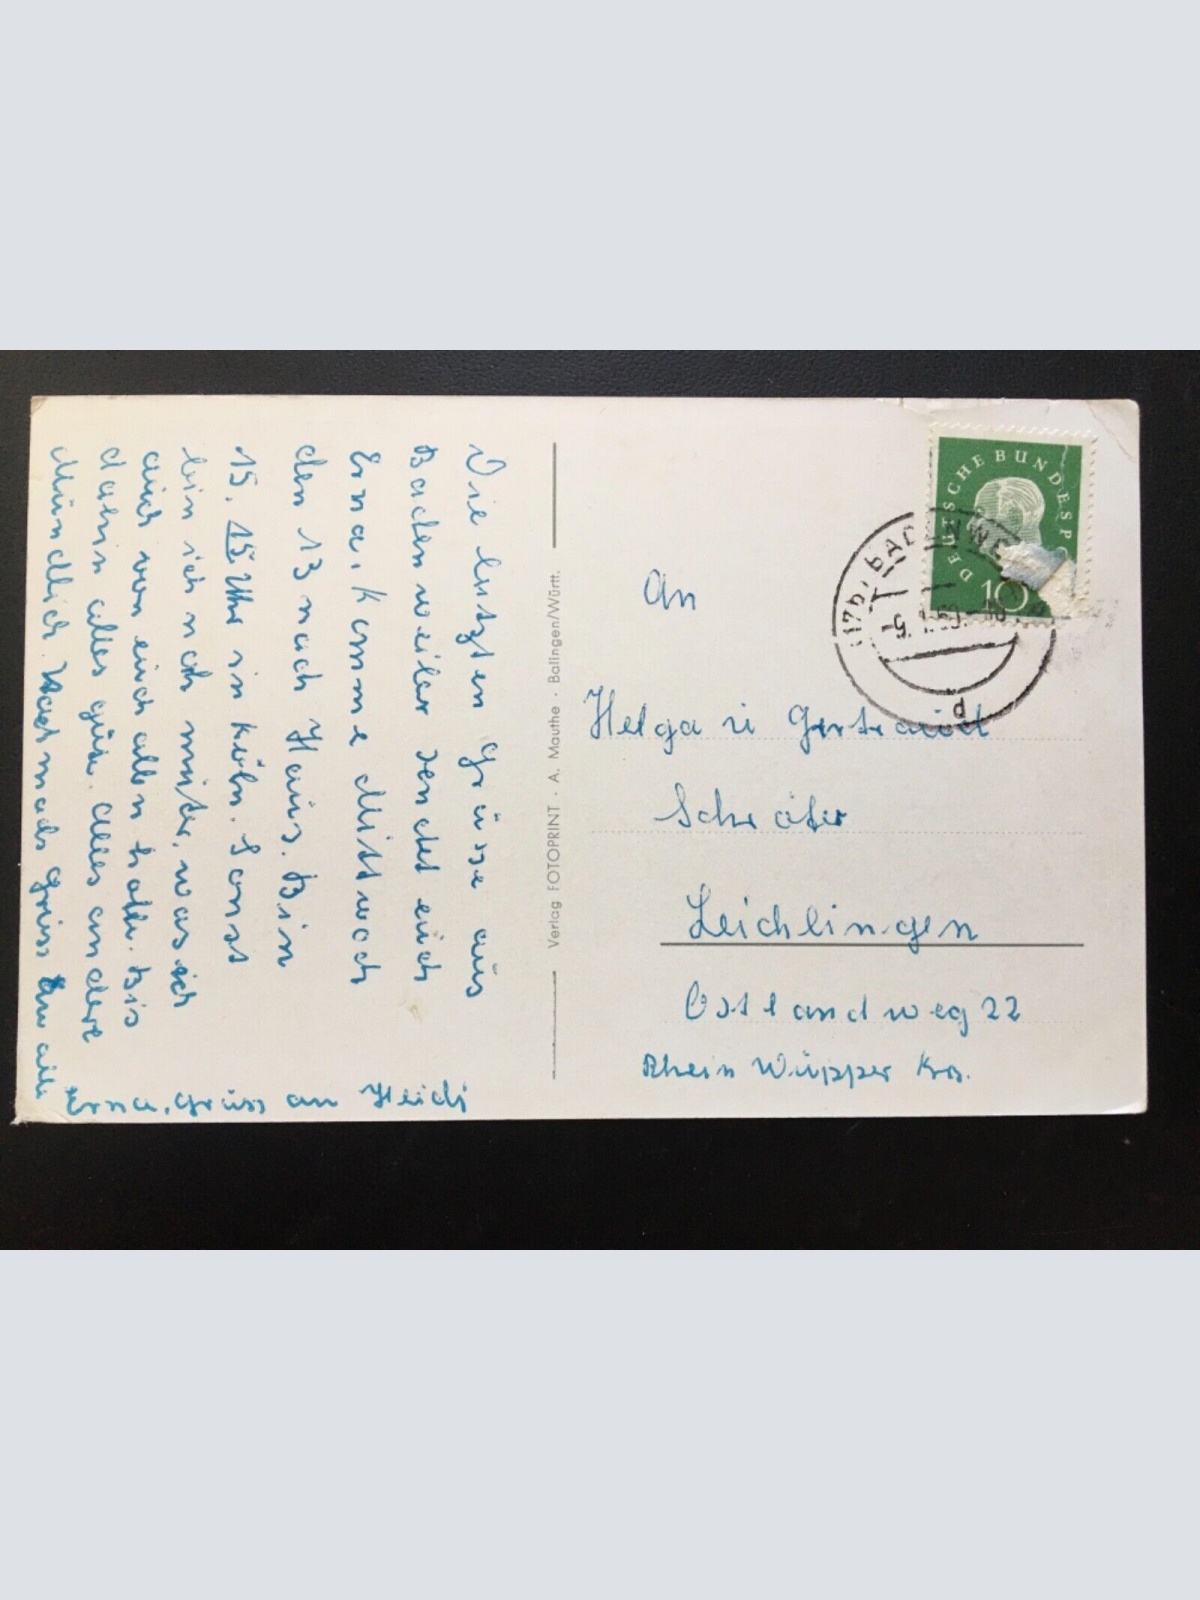 Die letzten Grüse aus
Badenweiler sendet euch
Erna. Komme Mittwoch
den 13 nach Haus. Bin
15.15 Uhr in Köln. Sonst
bin ich noch munter, was ich
auch von euch allen hoffe. Bis
dahin alles gute. Alles andere
Mündlich. Nochmals Gruss an alle
Erna. Gruss an Heidi
Verlag FOTOPRINT · A. Mauthe · Balingen/Württ.
DEUTSCHE BUNDESP
10
(17b) BADENWE
-5.1.60.-18
d
An
Helga u Gertraud
Schröter
Leichlingen
Ostlandweg 22
Rhein Wüpper Krs.